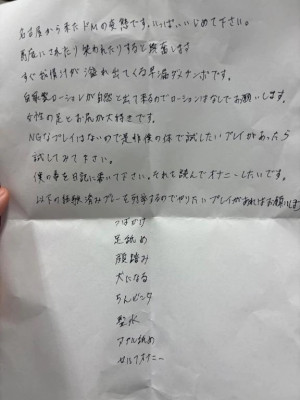 名古屋から来たドMの変態です。いっぱいいじめて下さい。
馬鹿にされたり笑われたりすると興奮します
すぐお漏れてくる早漏ダメチンポです。
自家製ローションが自然と出て来るのでローションはなしでお願いします。
女性の足とお尻が大好きです。
NGなプレイはないので是非僕の体で試したいプレイがあったら
試してみて下さい。
僕の事を日記に書いて下さい。それを読んでオナニーしたいです。
以下の経験済みプレーを列挙するのでやりたいプレイがあればお願いします
つばかけ
足舐め
顔踏み
犬になる
ちんビンタ
聖水
アナル舐め
セルフオナニー